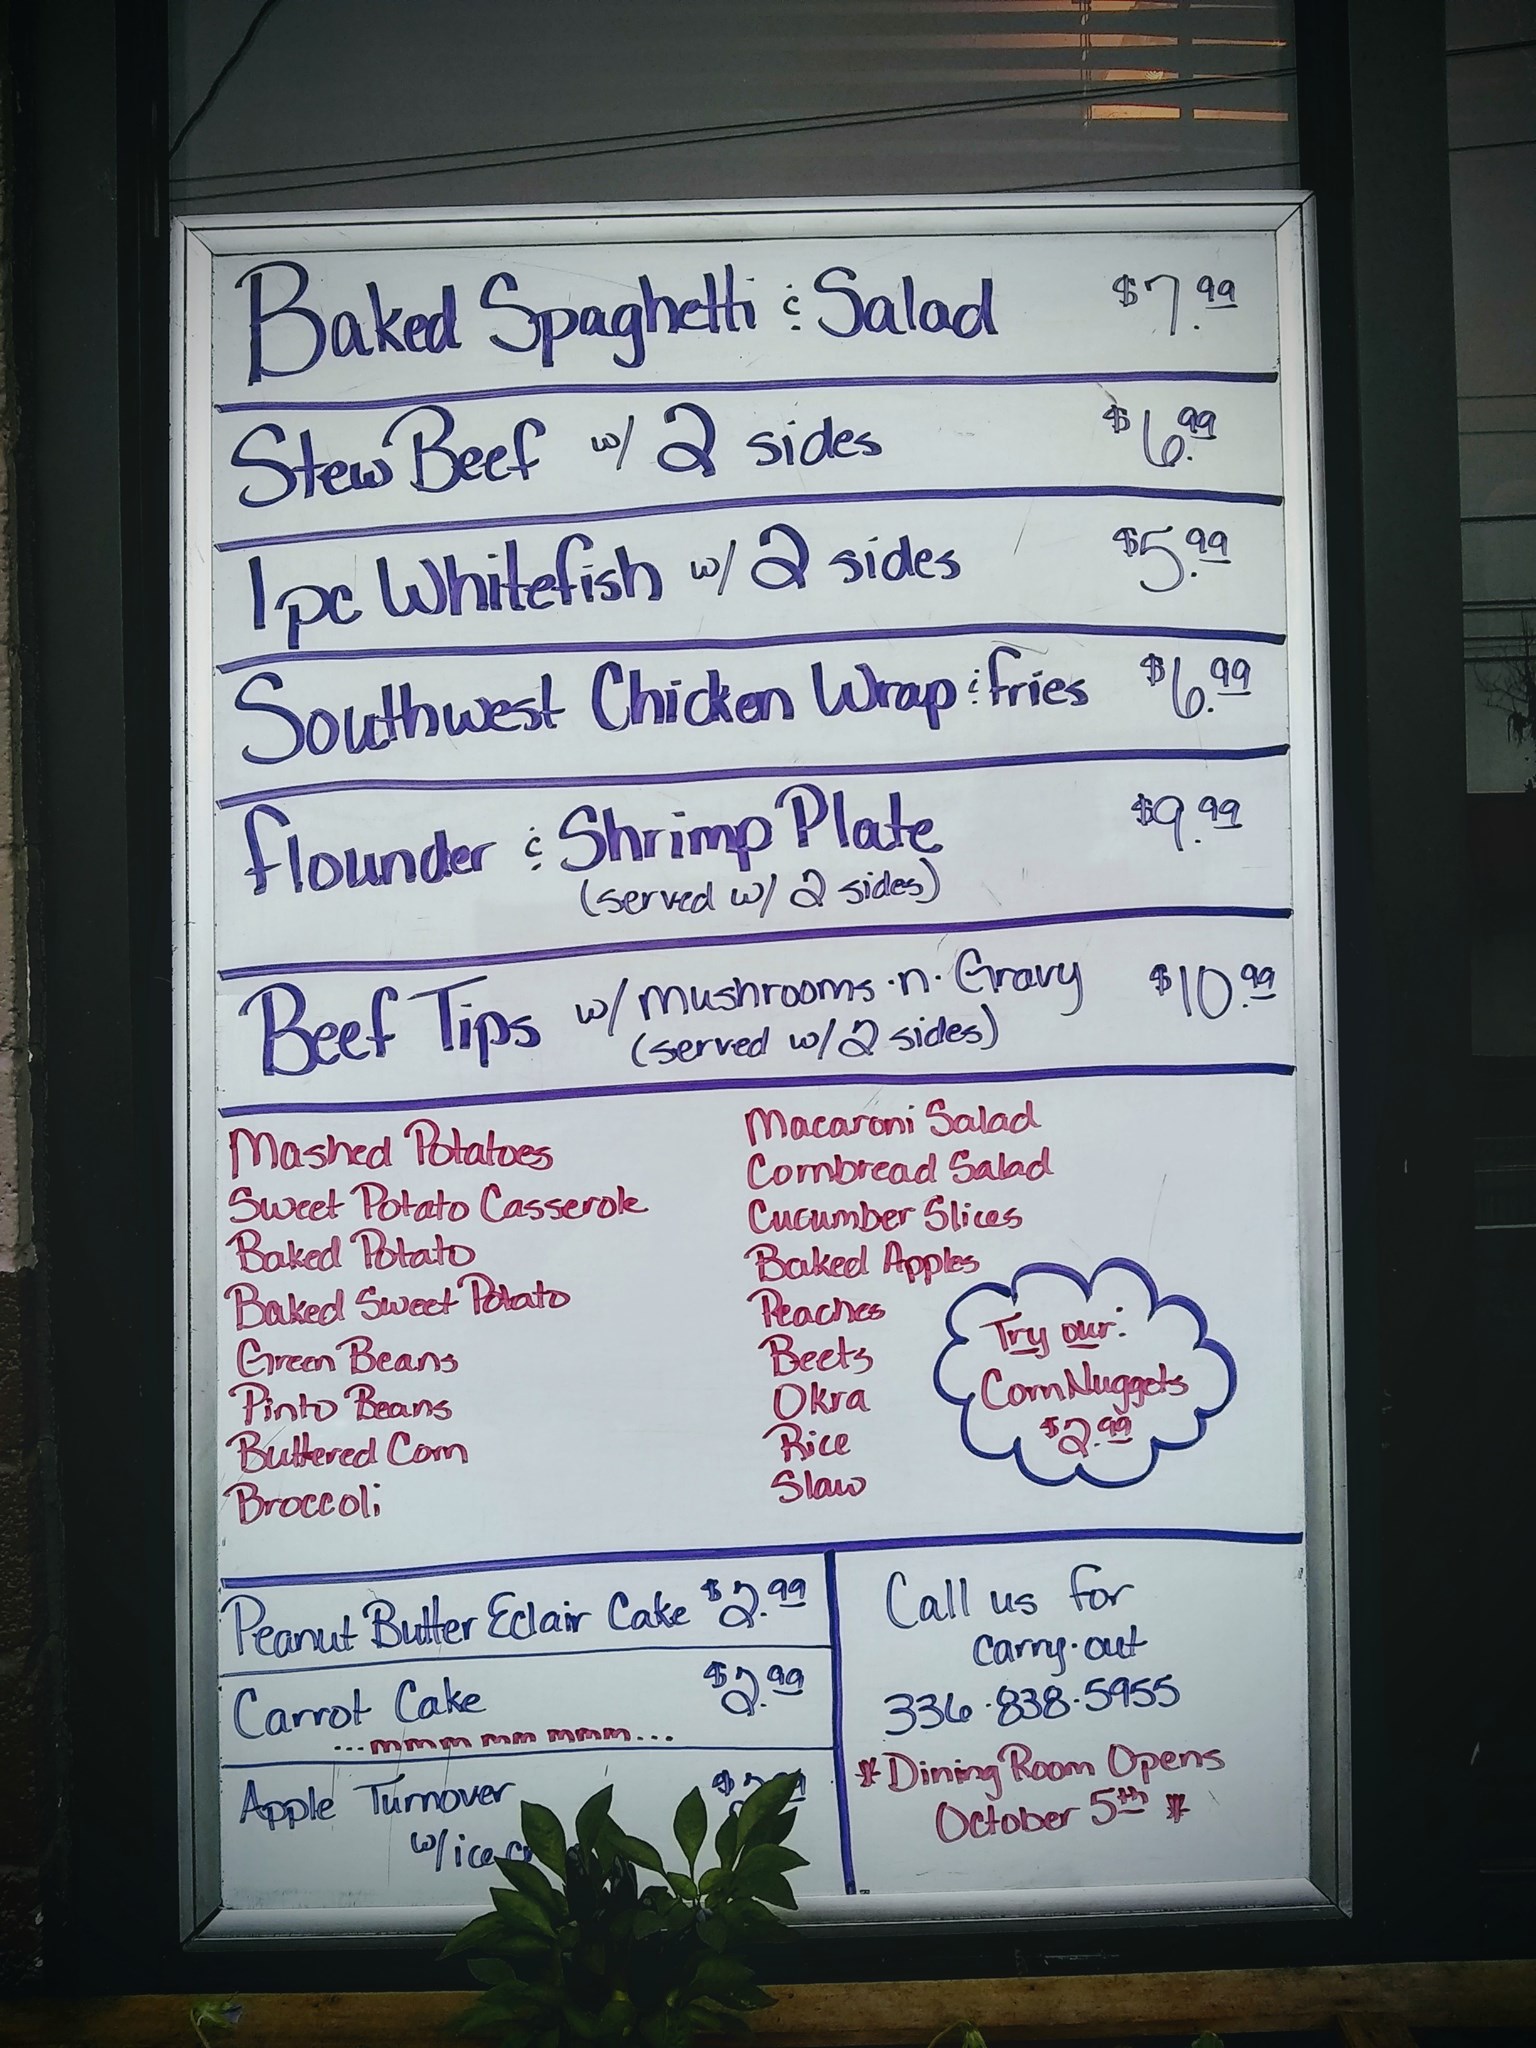 Baked Spaghetti & Salad $7.99
Stew Beef w/ 2 sides $6.99
1pc Whitefish w/ 2 sides $5.99
Southwest Chicken Wrap & fries $6.99
Flounder & Shrimp Plate $9.99
(served w/ 2 sides)
Beef Tips w/ mushrooms ·n· Gravy $10.99
(served w/ 2 sides)
Mashed Potatoes
Sweet Potato Casserole
Baked Potato
Baked Sweet Potato
Green Beans
Pinto Beans
Buttered Corn
Broccoli
Macaroni Salad
Cornbread Salad
Cucumber Slices
Baked Apples
Peaches
Beets
Okra
Rice
Slaw
Try our:
Corn Nuggets
$2.99
Peanut Butter Eclair Cake $2.99
Carrot Cake $2.99
...mmm mm mmm...
Apple Turnover
w/ ice
Call us for
carry·out
336·838·5955
*Dining Room Opens
October 5th *